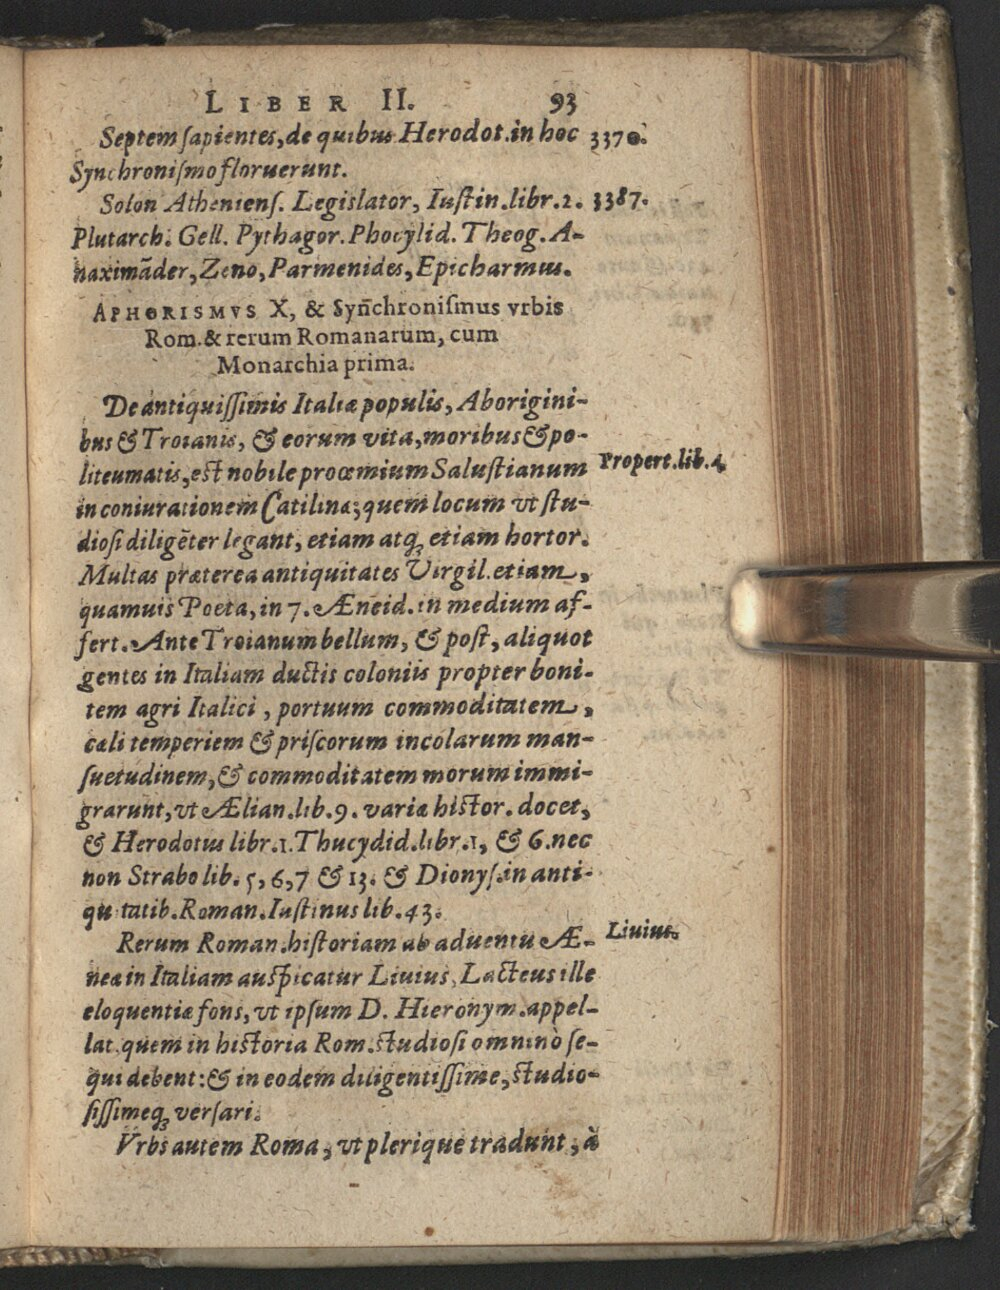 LIBER II. 93
Septem sapientes, de quibus Herodot. in hoc 3370.
Synchronismo floruerunt.
Solon Atheniens. Legislator, Iustin. libr. 2. 3387.
Plutarch. Gell. Pythagor. Phocylid. Theog. A-
naximãder, Zeno, Parmenides, Epicharmus.
APHORISMVS X, & Syñchronismus vrbis
Rom. & rerum Romanarum, cum
Monarchia prima.
De antiquissimis Italiæ populis, Aborigini-
bus & Troianis, & eorum vita, moribus & po-
liteumatis, est nobile proœmium Salustianum Propert. lib. 4
in coniurationem Catilinæ; quem locum vt stu-
diosi diligẽter legant, etiam atq; etiam hortor.
Multas præterea antiquitates Virgil. etiam,
quamuis Poeta, in 7. Æneid. in medium af-
fert. Ante Troianum bellum, & post, aliquot
gentes in Italiam ductis coloniis propter boni-
tem agri Italici, portuum commoditatem,
cæli temperiem & priscorum incolarum man-
suetudinem, & commoditatem morum immi-
grarunt, vt Ælian. lib. 9. variæ histor. docet,
& Herodotus libr. 1. Thucydid. libr. 1, & 6. nec
non Strabo lib. 5, 6, 7 & 13. & Dionys. in anti-
quitatib. Roman. Iustinus lib. 43.
Rerum Roman. historiam ab aduentu Æ- Liuius.
neæ in Italiam auspicatur Liuius, Lacteus ille
eloquentiæ fons, vt ipsum D. Hieronym. appel-
lat. quem in historia Rom. studiosi omninò se-
qui debent: & in eodem diligentissime, studio-
sissimeq; versari.
Vrbs autem Roma, vt plerique tradunt, à